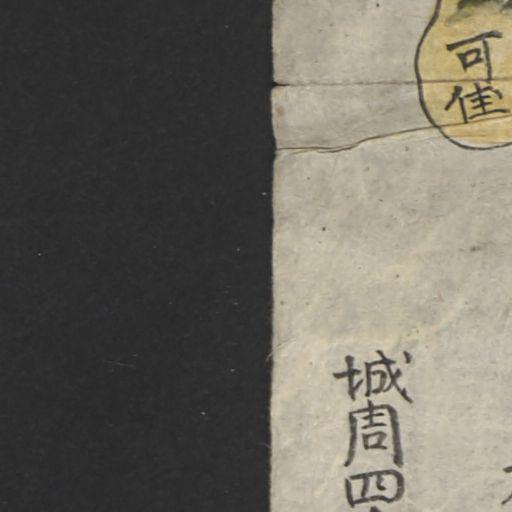 可佳
城周四